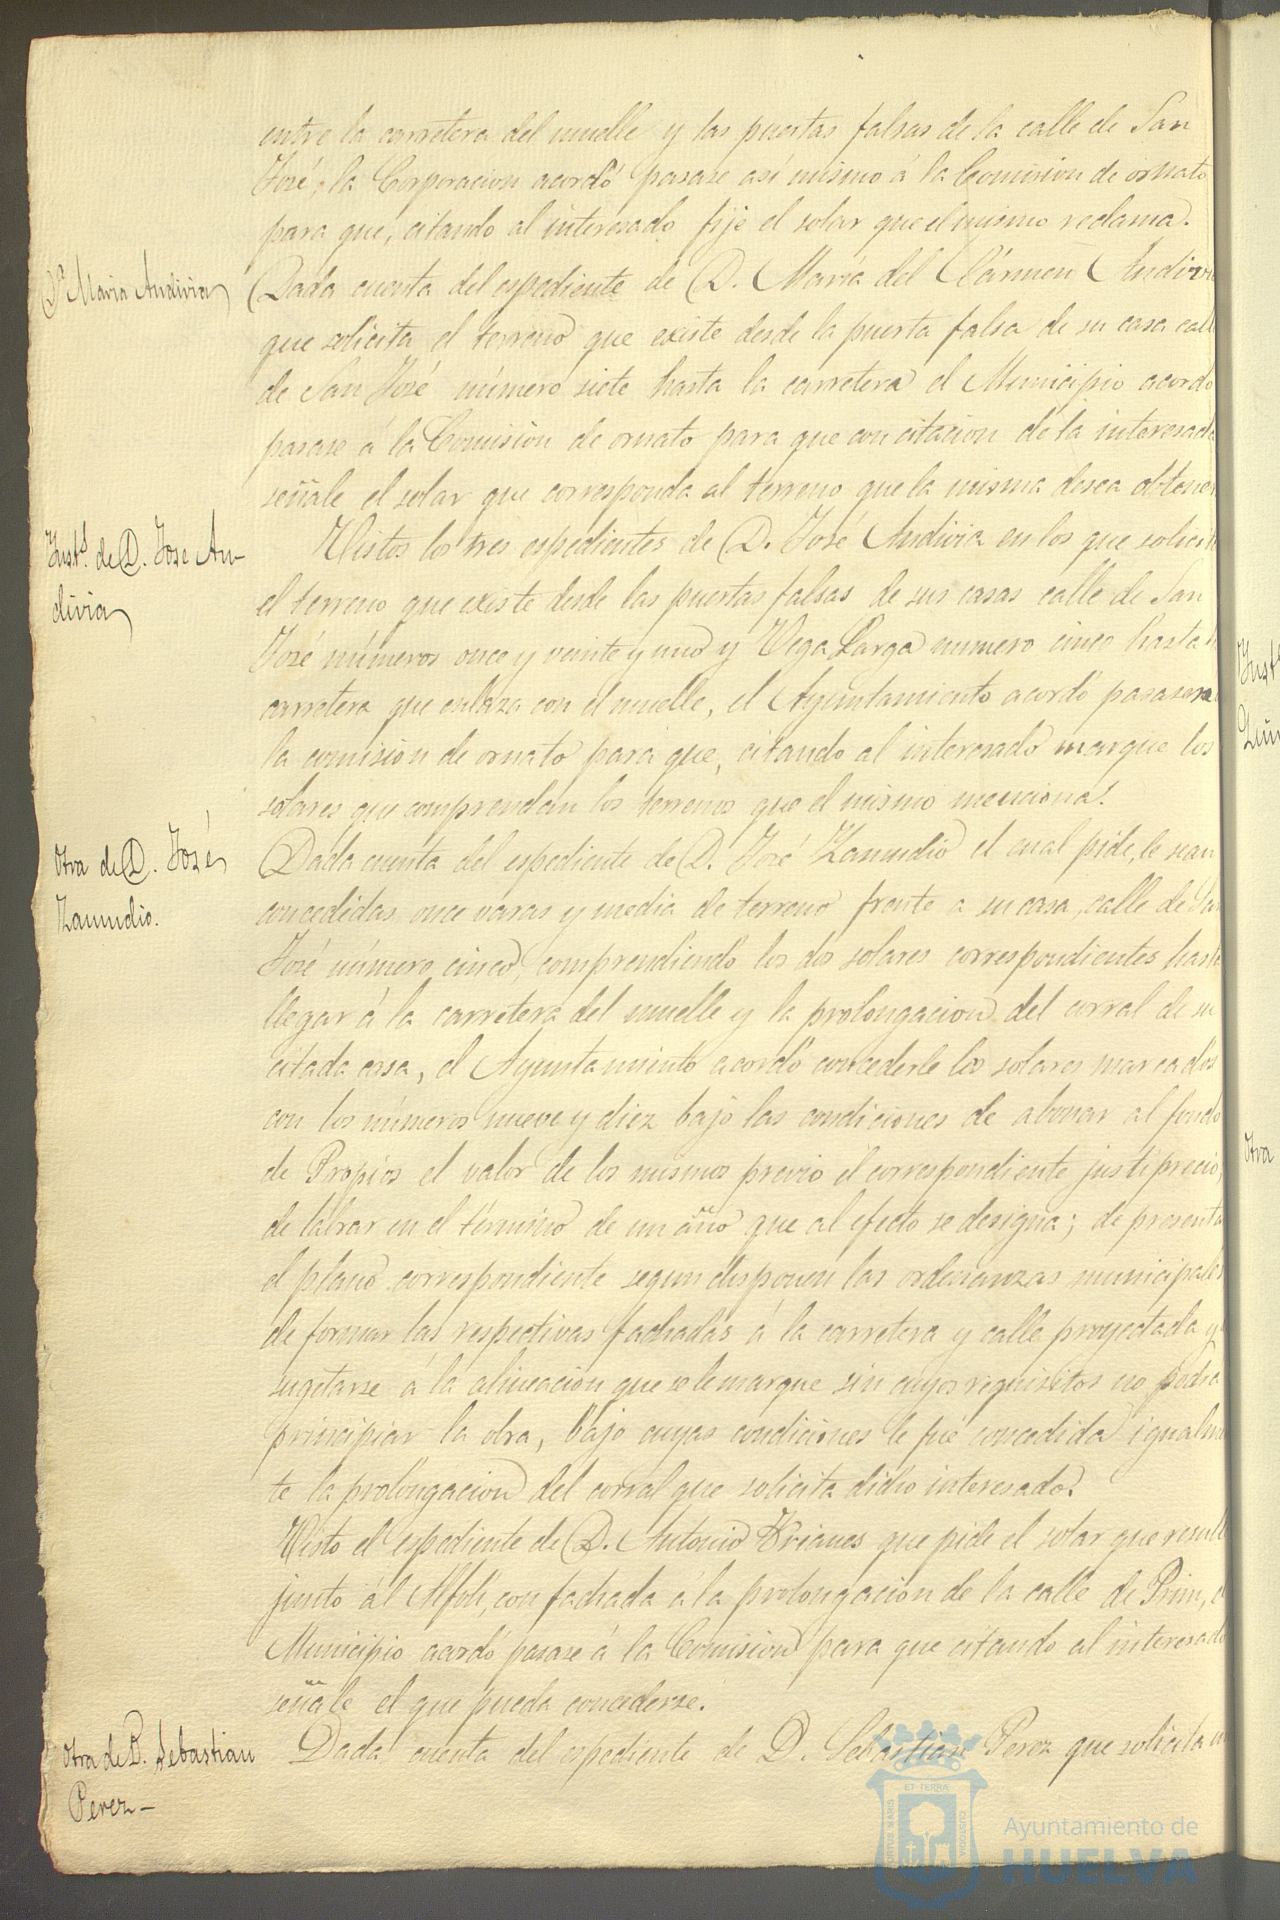 entre la carretera del muelle y las puertas falsas de la calle de San
José; la Corporacion acordó pasase así mismo á la Comision de ornato
para que, citando al interesado fije el solar que el mismo reclama.
Dª Maria Andivia
Dada cuenta del espediente de D. María del Cármen Andivi
que solicita el terreno que existe desde la puerta falsa de su casa call
de San José número siete hasta la carretera el Municipio acordó
pasase á la Comision de ornato para que con citacion de la interesada
señale el solar que corresponda al terreno que la misma desea obtener
Instˢ. de D. Jose An-
divia
Vistos los tres espedientes de D. José Andivia en los que solicita
el terreno que existe desde las puertas falsas de sus casas calle de San
José números once y veinte y uno y Vega Larga numero cinco hasta l
carretera que enlaza con el muelle, el Ayuntamiento acordó pasasen a
la comision de ornato para que, citando al interesado marque los
solares que comprendan los terrenos que el mismo menciona.
Otra de D. José
Zamudio.
Dada cuenta del espediente de D. José Zamudio el cual pide, le sean
concedidas once varas y media de terreno frente a su casa, calle de San
José número cinco, comprendiendo los dos solares correspondientes hasta
llegar á la carretera del muelle y la prolongacion del corral de su
citada casa, el Ayuntamiento acordó concederle los solares marcados
con los números nueve y diez bajo las condiciones de abonar al fondo
de Propios el valor de los mismos previo el correspondiente justiprecio,
de labrar en el término de un año que al efecto se designa; de presenta
el plano correspondiente segun disponen las ordenanzas municipales
de formar las respectivas fachadas á la carretera y calle proyectada y
sugetarse á la alineacion que se le marque sin cuyos requisitos no podrá
principiar la obra, bajo cuyas condiciones le fué concedida igualmen
te la prolongacion del corral que solicita dicho interesado.
Visto el espediente de D. Antonio que pide el solar que result
junto al Alfolí, con fachada á la prolongacion de la calle de Prim, e
Municipio acordó pasase á la Comision para que citando al interesado
señale el que pueda concederse.
Otra de D. Sebastian
Perez-
Dada cuenta del espediente de D. Sebastian Perez que solicita un
Inst
Otra
ET TERRA
PORTUS MARIS
CUSTODIA
Ayuntamiento de
HUELVA